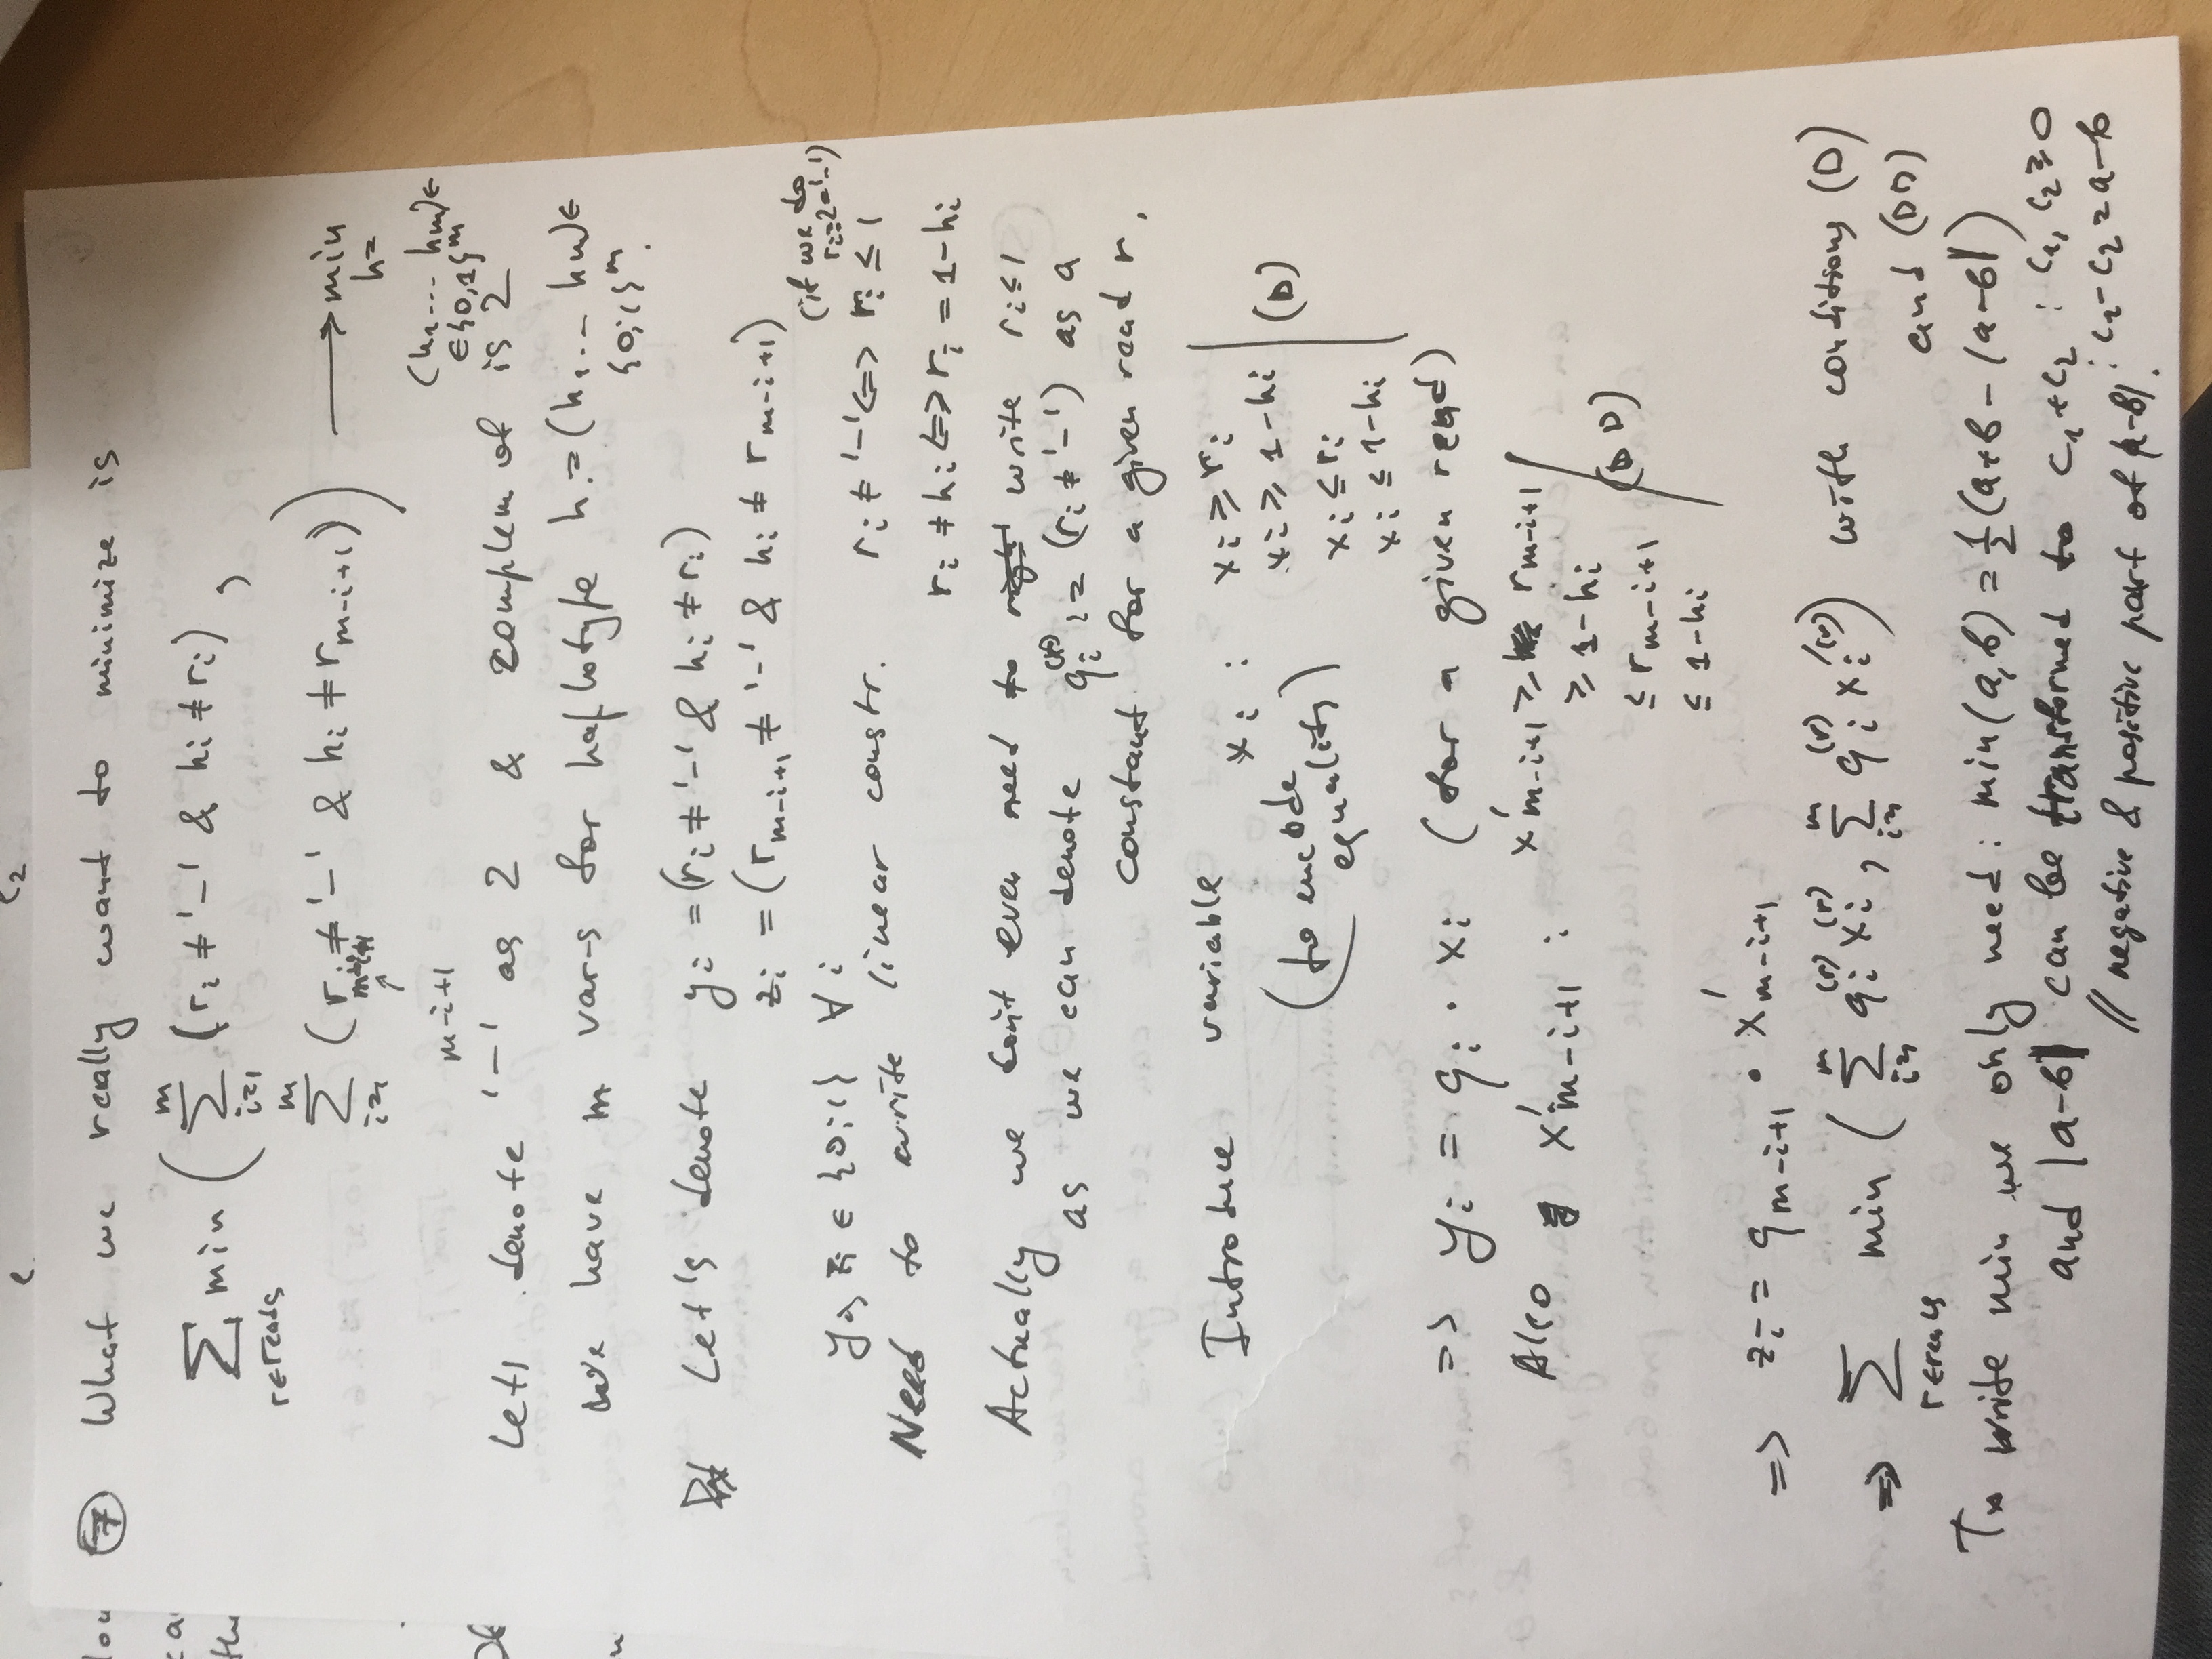 ⑦ What we really want to minimize is
∑ min ( ∑ (rᵢ ≠ '-' & hᵢ ≠ rᵢ) ,
r∈reads i=1 m
m ∑ i=1 (r m-i+1 ≠ '-' & hᵢ ≠ r m-i+1) ) ⟶ min
h=
m-i+1
(h₁... hm)∈
∈{0,1}ᵐ
Lets denote '-' as 2 & complem of is 2
We have m var-s for haplotype h = (h₁... hm)∈
{0;1}ᵐ.
Let's denote yᵢ = (rᵢ ≠ '-' & hᵢ ≠ rᵢ)
zᵢ = (r m-i+1 ≠ '-' & hᵢ ≠ r m-i+1)
(if we do
rᵢ=2='-')
yᵢ, zᵢ ∈ {0;1} ∀ i
Need to write linear constr. rᵢ ≠ '-' <=> rᵢ ≤ 1
rᵢ ≠ hᵢ <=> rᵢ = 1-hᵢ
Actually we don't even need to write rᵢ≤1
as we can denote qᵢ⁽ʳ⁾ := (rᵢ ≠ '-') as a
constant for a given read r.
Introduce variable xᵢ : xᵢ ≥ rᵢ
(to encode xᵢ ≥ 1-hᵢ (D)
equality) xᵢ ≤ rᵢ
xᵢ ≤ 1-hᵢ
=> yᵢ = qᵢ · xᵢ (for a given read)
Also x' m-i+1 : x' m-i+1 ≥ r m-i+1
≥ 1-hᵢ
≤ r m-i+1 (DD)
≤ 1-hᵢ
=> zᵢ = q m-i+1 · x' m-i+1
=> ∑ r∈reads min ( ∑ i=1 m qᵢ⁽ʳ⁾ xᵢ⁽ʳ⁾ , ∑ i=1 m qᵢ⁽ʳ⁾ xᵢ'⁽ʳ⁾ ) with conditions (D)
and (DD)
To write min we only need : min(a,b) = ½(a+b - |a-b|)
and |a-b| can be transformed to c₁+c₂ : c₁, c₂ ≥ 0
: c₁-c₂ = a-b
// negative & positive part of |a-b|.